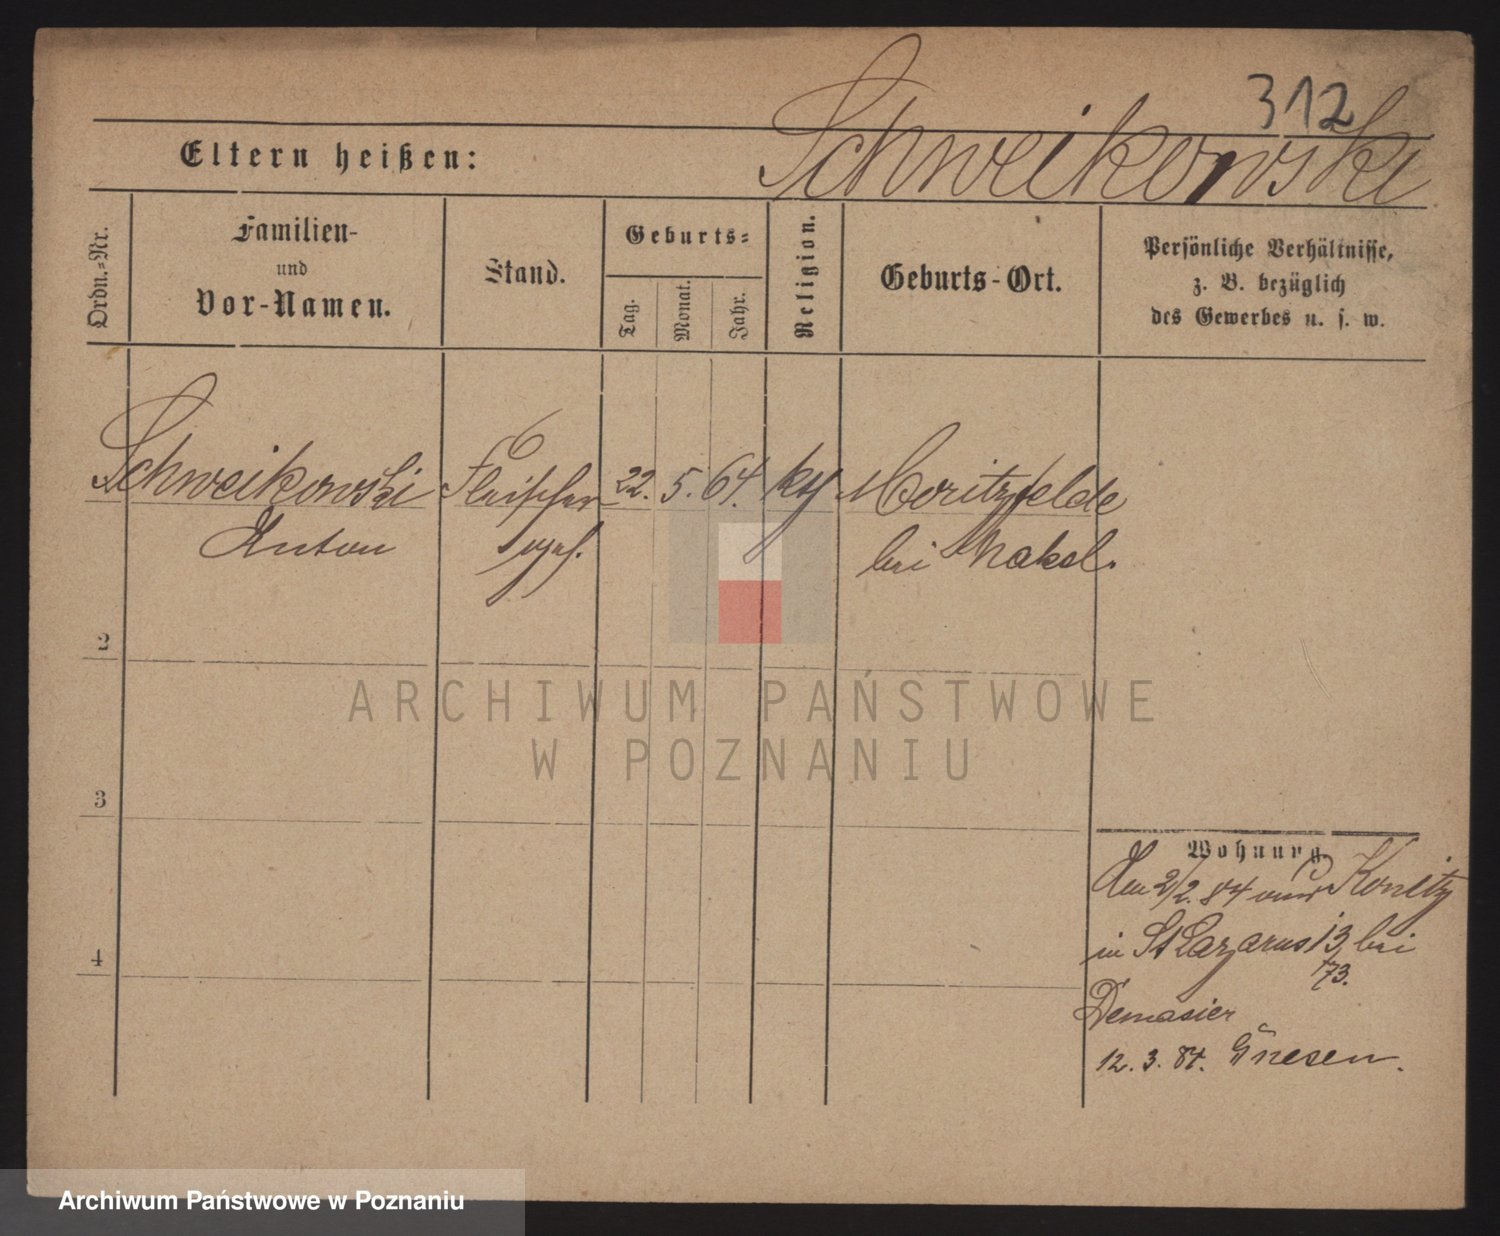 312
Schweikowski
Eltern heißen:
Ordn.-Nr.
Familien-
und
Vor-Namen.
Stand.
Geburts-
Tag.
Monat.
Jahr.
Religion.
Geburts-Ort.
Persönliche Verhältnisse,
z. B. bezüglich
des Gewerbes u. s. w.
Schweikowski Fleischer 22. 5. 64. kth Moritzfelde
Anton ges. bei Nakel.
2
3
4
ARCHIWUM PAŃSTWOWE
W POZNANIU
Wohnung.
Am 2/2. 84 aus Konitz
in St Lazarus 13 bei
73.
Demasier
12. 3. 84. Gnesen.
Archiwum Państwowe w Poznaniu